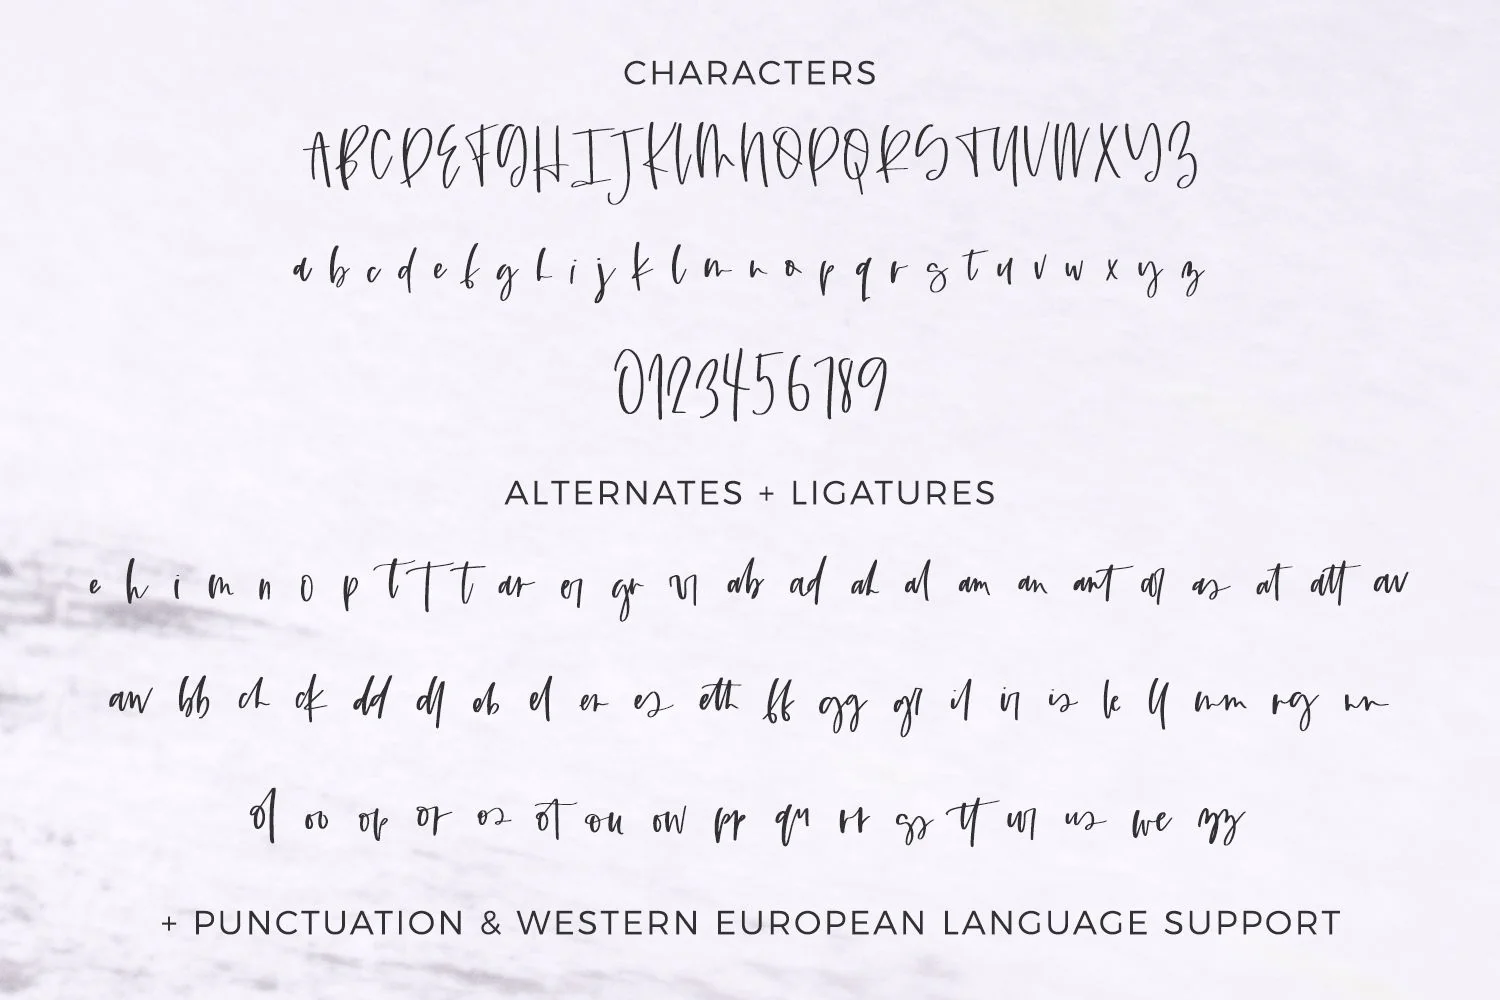 CHARACTERS
ABCDEFGHIJKLMNOPQRSTUVWXYZ
a b c d e f g h i j k l m n o p q r s t u v w x y z
0123456789
ALTERNATES + LIGATURES
e h i m n o p t T t ar er gr ab ad ah al am an ant as at att av
aw bb ch ck dd eb el er es eth ff gg il ir is k ll mm rg
ol oo op or os ot ou ow pp qu rr ss tt ur us we zz
+ PUNCTUATION & WESTERN EUROPEAN LANGUAGE SUPPORT